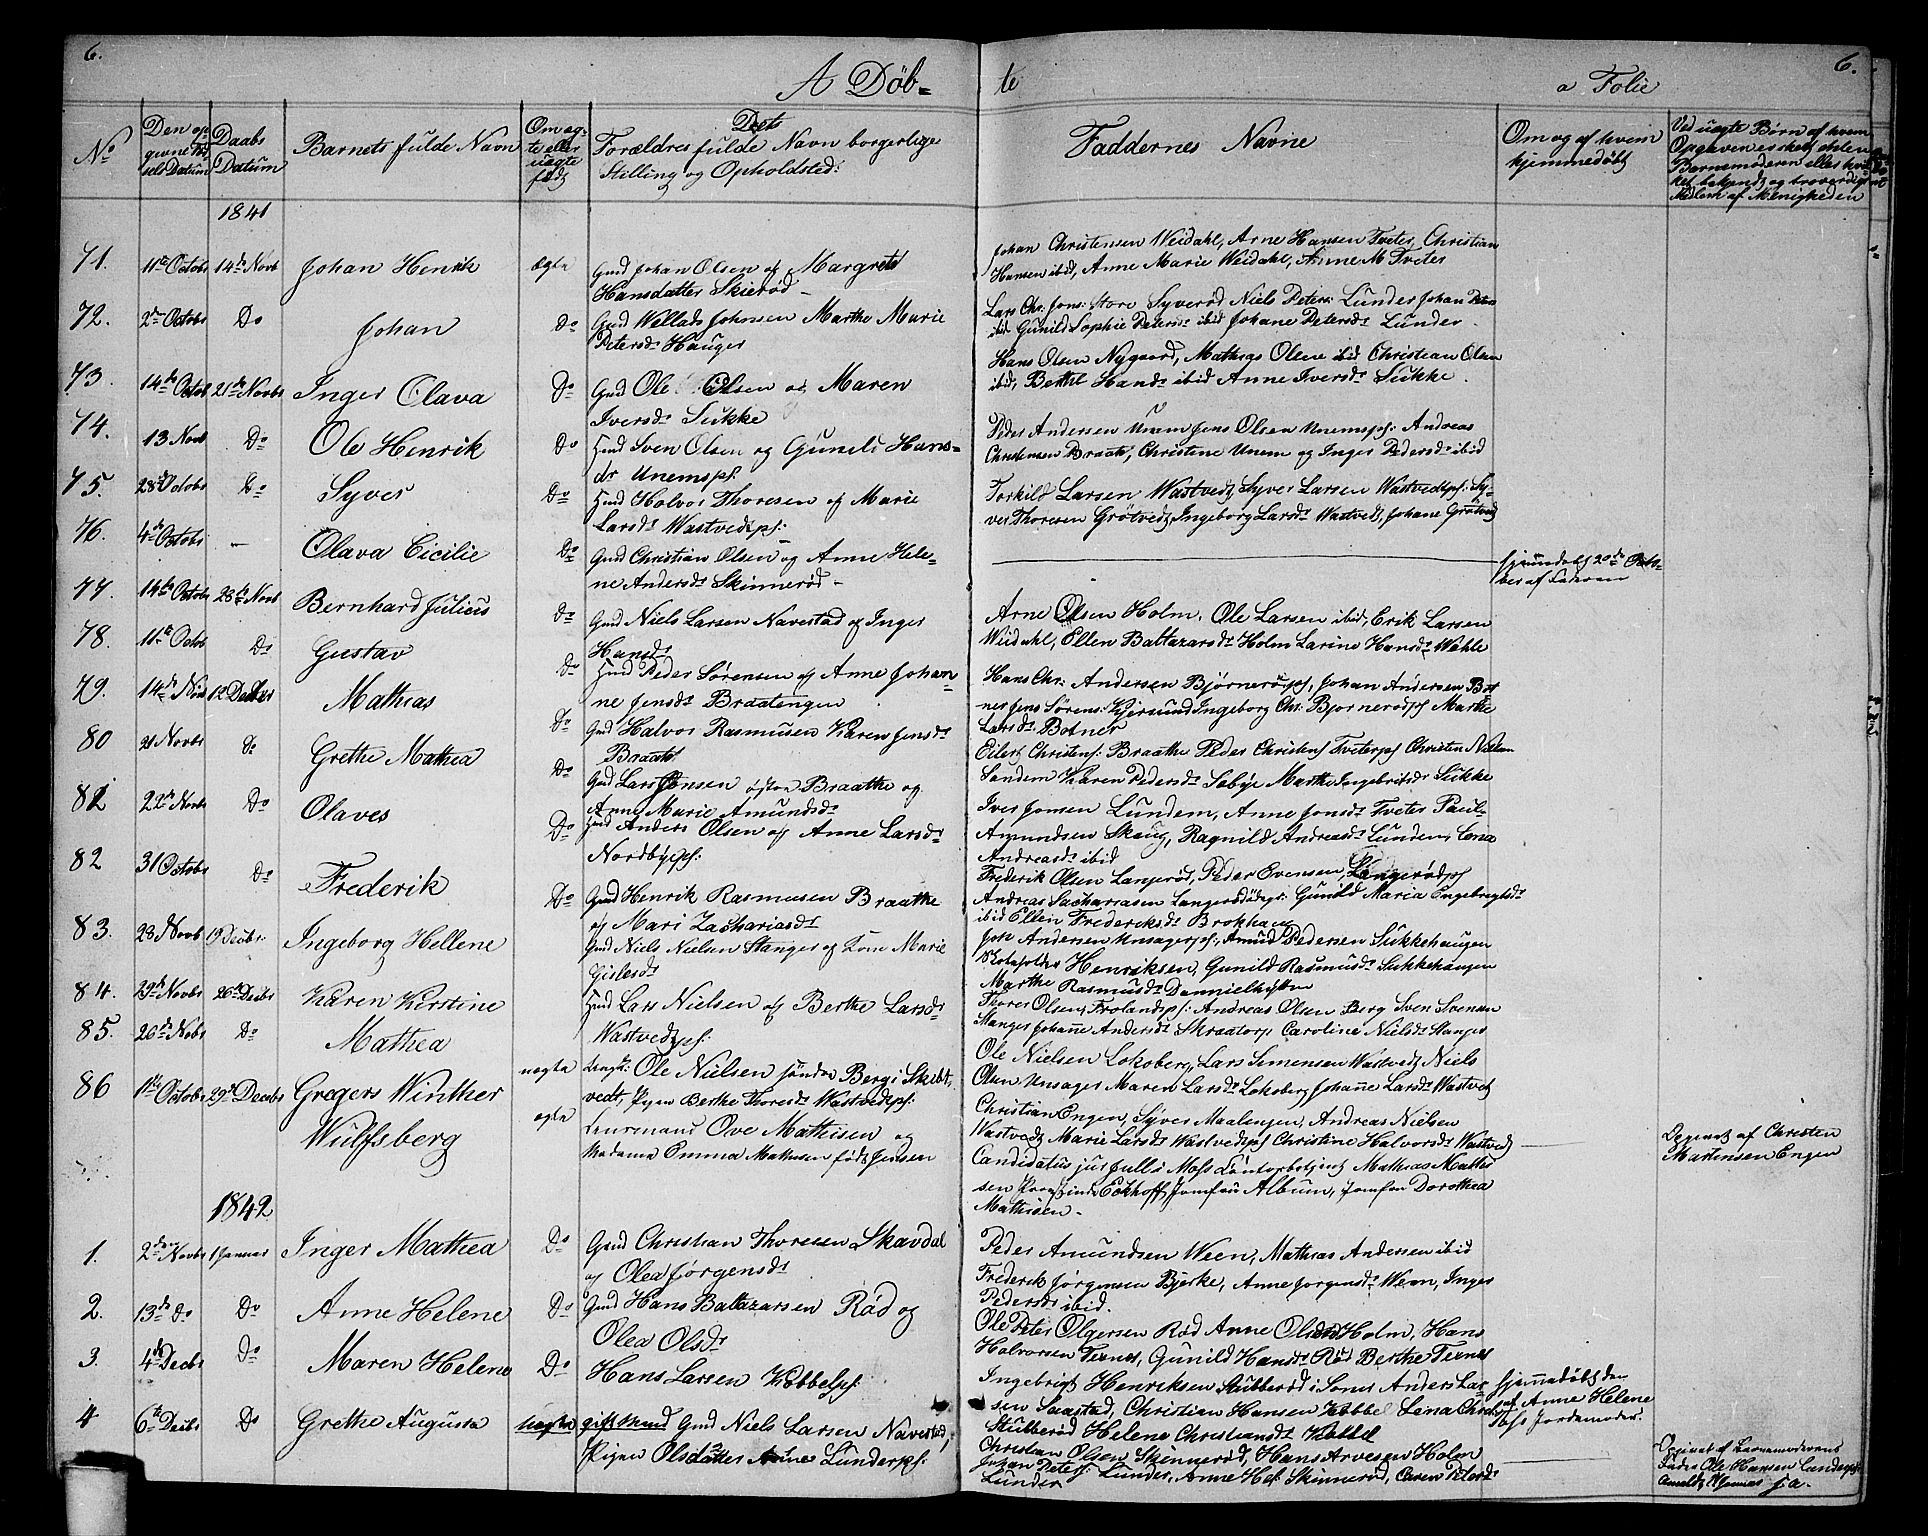 6.
A Døb=
te
a Folie
6.
No
Den op
givne Fød
sels Datum
Daabs
Datum
Barnets fulde Navn
Om æg-
te eller
uægte
født
Dets
Forældres fulde Navn borgerlige
Stilling og Opholdsted:
Faddernes Navne
Om og af hvem
hjemmedøbt
Ved uægte Børn af hvem
Opgaven er skeet enten
Barnemoderen eller hvil-
ket bekjendt og troværdigt
Medlem af Menigheden
1841
71.
11te Octobr
14de Novb
Johan Henrik
ægte
Gmd Johan Olsen og Margrete
Hansdatter Skierød
Johan Christensen Weidahl, Arne Hansen Tveter, Christian
Hansen ibid, Anne Marie Weidahl, Anne M Tveter
72.
2den Octobr
Do
Johan
Do
Gmd Wellads Johnsen Marthe Marie
Petersdr Hauger
Lars Chr. Jons: store Syverød Niels Peters: Lunder Johan Peters
ibid Gunild Sophie Petersdr ibid Johane Petersdr Lunder
73.
14de Octob
21de Novbr
Inger Olava
Do
Gmd Ole Olsen og Maren
Iversdr Sukke
Hans Olsen Nygaard, Mathias Olsen ibid Christian Olsen
ibid, Berthe Hansdr ibid Anne Iversdr Sukke.
74.
13 Novb
Do
Ole Henrik
Do
Hmd Sven Olsen og Gunild Hans-
dr Unemspl:
Peder Andersen Unem Jens Olsen Unemspl: Andreas
Christensen Braate, Christine Unem og Inger Pedersdr ibid
75.
28de Octobr
Do
Syver
Do
Hmd Halvor Thoresen og Marie
Larsdr Wastvedtpl:
Torkild Larsen Wastvedt, Syver Larsen Wastvedtpl: Sy-
ver Thoresen Grøtvedt, Ingeborg Larsdr Wastvedt, Johane Grøtvedt
76.
4de Octobr
—
Olava Cicilie
Do
Gmd Christian Olsen og Anne Hele-
ne Andersdr Skinnerød
hjemmedøbt 20de Octo-
ber af Faderen
77.
14de Octobr
28de Novb
Bernhard Julius
Do
Gmd Niels Larsen Navestad og Inger
Hansdr
Arne Olsen Holm, Ole Larsen ibid, Erik Larsen
Weidahl, Ellen Baltazarsdr Holm Larine Hansdr Wahle
78.
11te Octob
Do
Gustav
Do
Hmd Peder Sørensen og Anne Johan-
ne Jensdr Braatengen
Hans Chr: Andersen Bjørnerødpl, Johan Andersen Bot-
ner Jens Sørens: Ingeborg Chr: Bjørnerødpl Marthe
Larsdr Botner
79.
14de Nov
12 Decbr
Mathias
Do
Gmd Halvor Rasmusen Karen Jensdr
Braate
Eilert Christens: Braathe Peder Christens Tveterpl Christen Nielsen
Sandem Karen Pedersdr Søbye Marthe Ingebritsdr Sukke
80
21 Novbr
Do
Grethe Mathea
Do
Gmd Lars Jensen østre Braathe og
Anne Marie Amundsdr
Iver Jonsen Lundem, Anne Jonsdr Tveter Paul
Amundsen Skaug, Ragnild Andreasdr Lundem, Lena
Andreasdr ibid
81
22de Novbr
Do
Olaves
Do
Hmd Anders Olsen og Anne Larsdr
Nordbyepl:
Frederik Olsen Langerød, Peder Evensen Langerødpl
Andreas Sachariasen Langerødpl: Gunild Maria Engebregtsdr
ibid Ellen Frederiksdr Brokhaug
82
31 Octobr
Do
Frederik
Do
Gmd Henrik Rasmusen Braathe
og Mari Zachariasdr
Joh Andersen Unsagerpl:, Amund Pedersen Sukkehaugen
Henriksen, Gunild Rasmusdr Sukkehaugen
Marthe Rasmusdr
83.
28 Novb
19 Decbr
Ingeborg Hellene
Gmd Niels Nielsen Stanger og Marie
Gislesdr
Thorer Olsen Frolandspl: Andreas Olsen Berg Sven Svensen
Stanger Johanne Andersdr Skraatorp Caroline Nielsdr Stanger
84.
29de Novbr
26de Decbr
Karen Kirstine
Hmd Lars Nielsen og Berthe Larsdr
Wastvedtpl:
Ole Nielsen Lokeberg, Lars Simensen Wastvedt Niels
Olsen Unsager Maren Larsdr Lokeberg Johanne Larsdr Wastvedt
85.
26de Novbr
Do
Mathea
uægte
Ungk: Ole Nielsen søndre Berg i Skibt-
vedt, Pigen Berthe Thoresdr Wastvedtpl:
Christian Engen, Syver Maalengen, Andreas Nielsen
Wastvedt, Marie Larsdr Wastvedtpl Christine Halvorsdr Wastvedt
Opgivet af Christen
Martensen Engen
86
11te Octobr
29de Decbr
Gregers Winther
Wulfsberg
ægte
Lensmand Ove Mathisen og
Madame Emma Mathisen født Jensen
Candidatus jur full i Moss Mathias Mathi-
sen Eckhoff, Jomfru Album, Jomfru Dorothea
Mathisen
1842
1.
2den Novbr
1 Januar
Inger Mathea
Do
Gmd Christian Thoresen Skavdal
og Olea Jørgensdr
Peder Amundsen Ween, Mathias Andersen ibid
Frederik Jørgensen Bjerke, Anne Jørgensdr Ween, Inger
Pedersdr ibid.
2.
13de Do
Do
Anne Helene
Do
Gmd Hans Baltazarsen Rød og
Olea Olsdr
Ole Peter Olgersen Rød Anne Olsdr Holm, Hans
Halvorsen Ternes, Gunild Hansdr Rød Berthe Ternes
3.
4de Decbr
Do
Maren Helene
Do
Hans Larsen Kabbelpl:
Ingebrigt Henriksen Stubberød i Soner Anders Lar-
sen Saastad, Christian Hansen Kabbel Lena Christ
Stubberød Helene Christiansdr Kabbel
hjemmedøbt den
af Anne Helene
Jordemoder.
4
6te Decbr
Do
Grethe Augusta
uægte
gift Mand Gmd Niels Larsen Navestad,
Pigen Olsdatter Anne Lunderpl:
Christian Olsen Skinnerød, Hans Arvesen Holm
Johan Peters: Lunder, Anne Hel Skinnerød, Caren Petersdr
Lunder
Opgivet af Barnemoderens
Fader Ole Hansen Lunderpl: